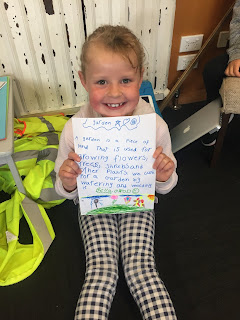 A garden
A garden is a piece of
land that is used for
growing flowers,
trees, shrubs and
other plants we care
for a garden by
watering and weeding
it